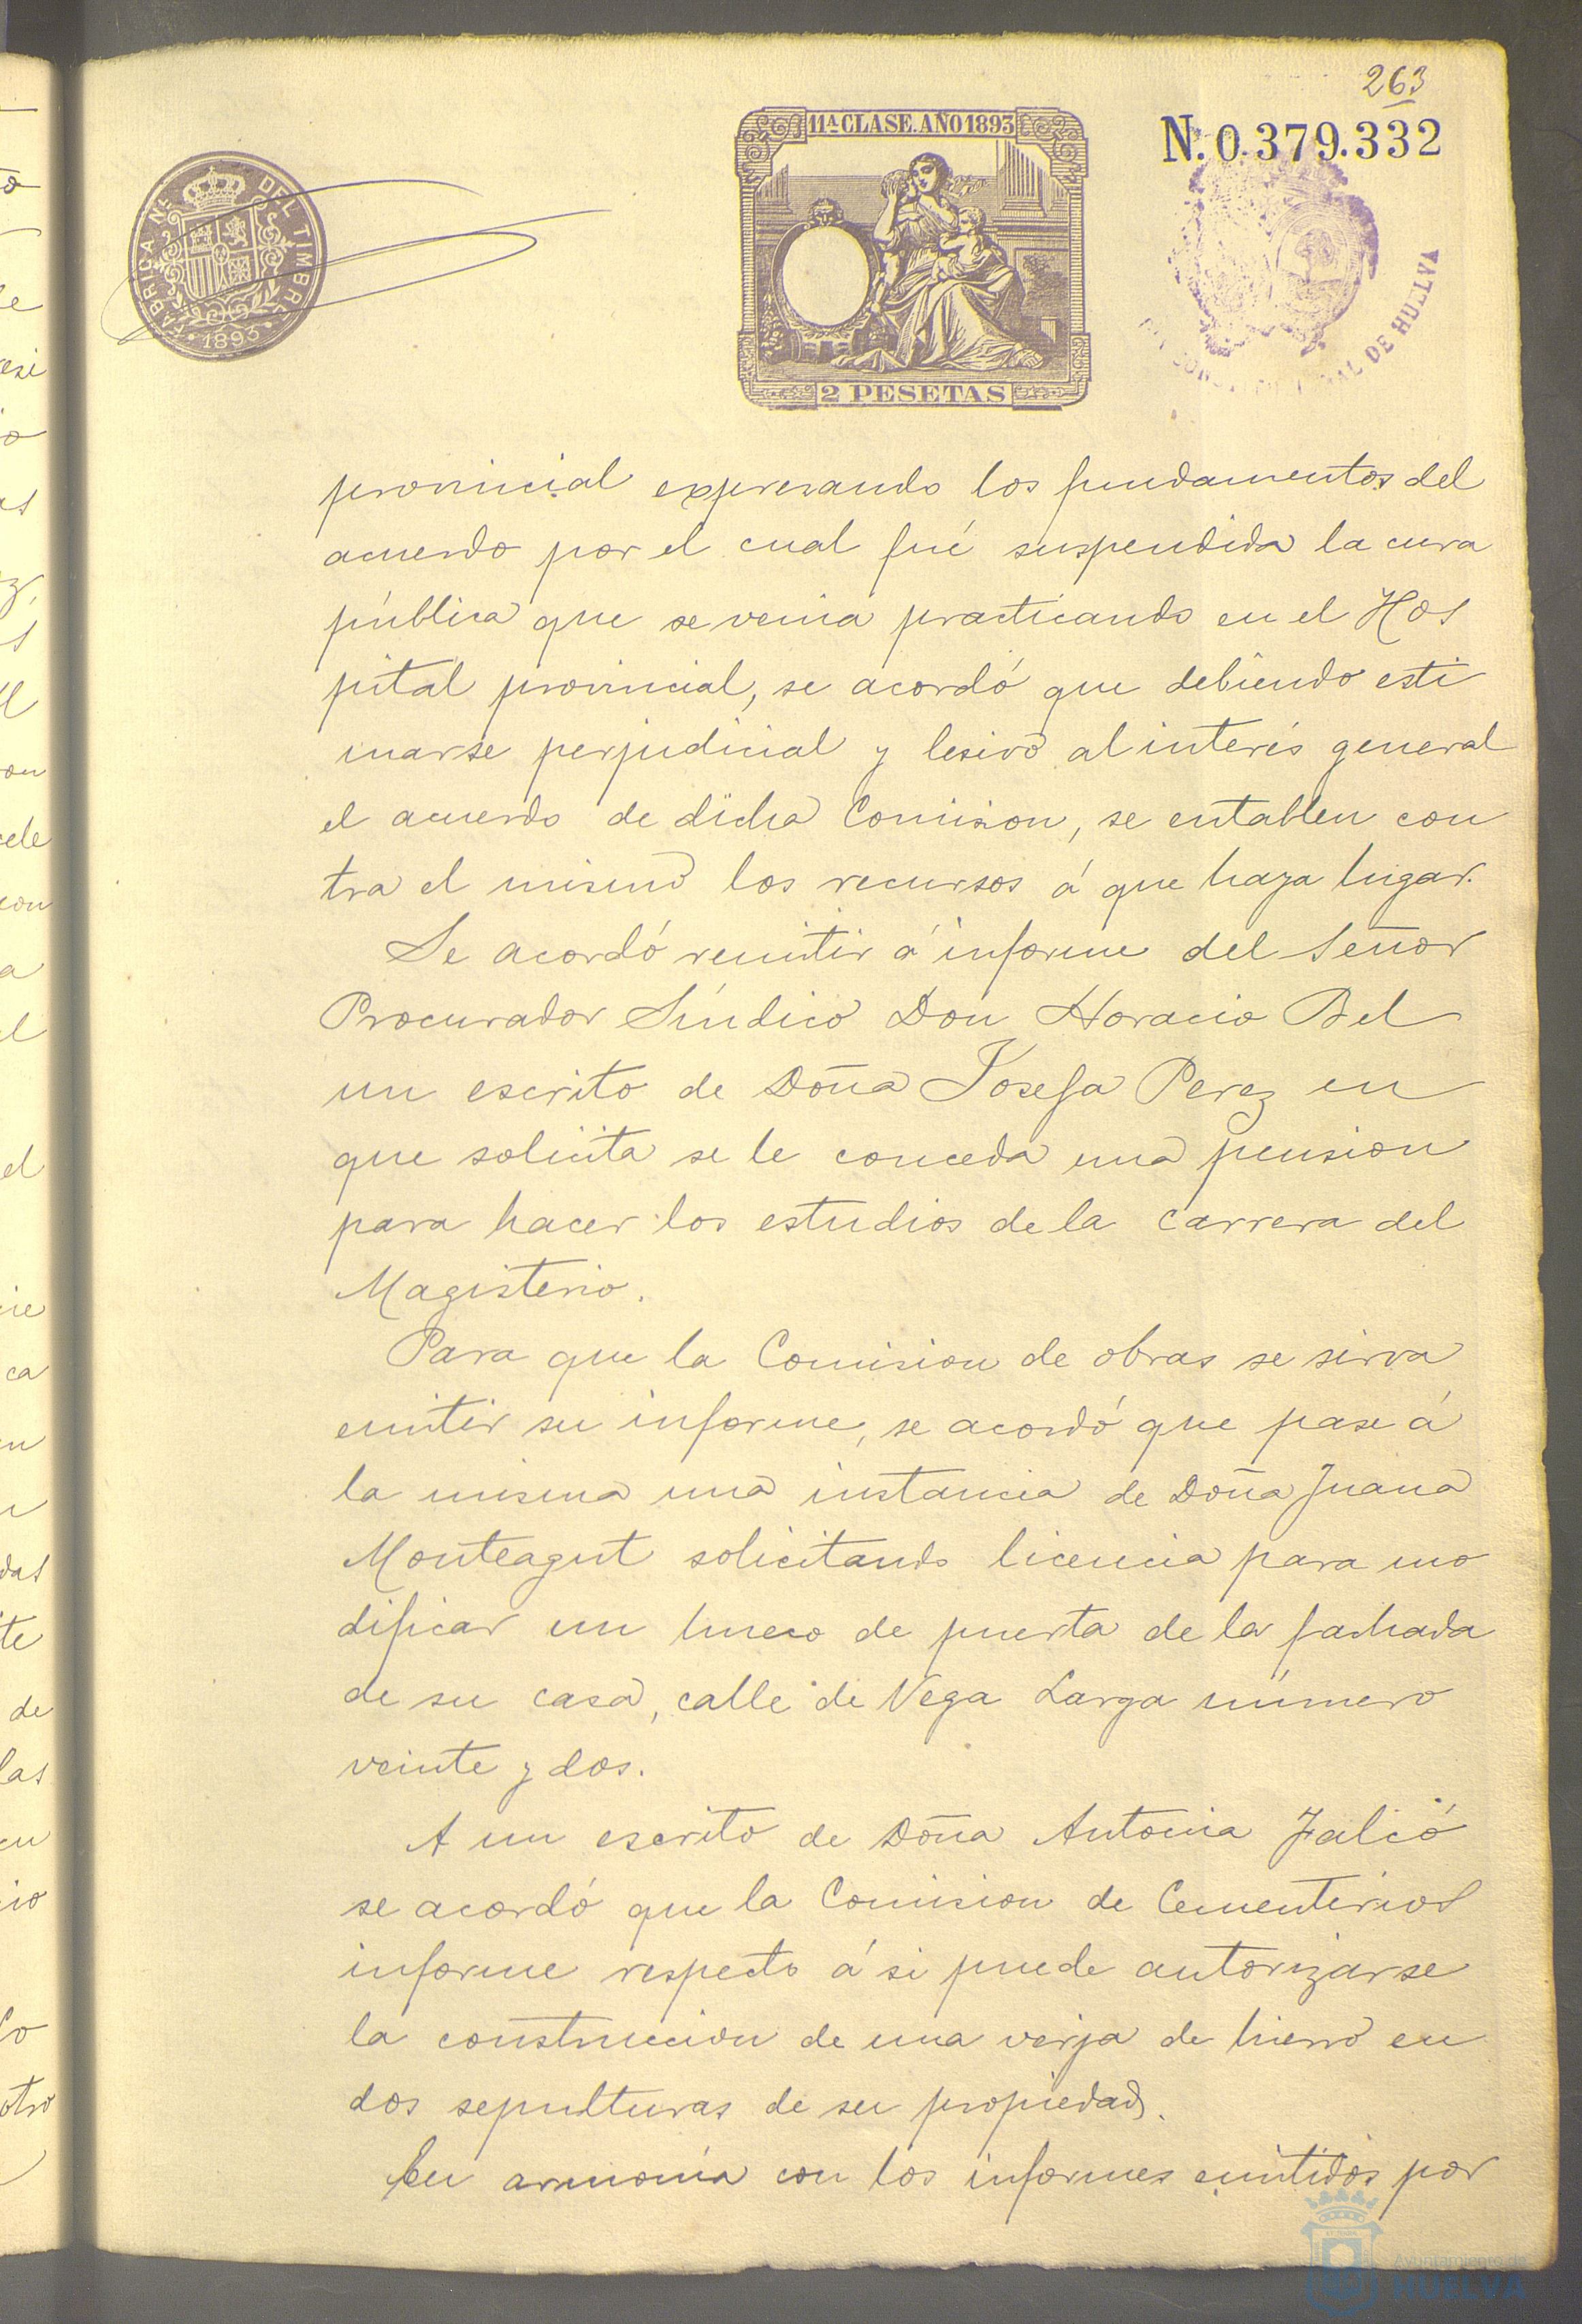 263
11ª CLASE. AÑO 1893
N. 0.379.332
FÁBRICA NL. DEL TIMBRE
1893
2 PESETAS
CONS AL DE HUELVA
provincial expresando los fundamentos del
acuerdo por el cual fué suspendida la cura
pública que se venia practicando en el Hos
pital provincial, se acordó que debiendo esti
marse perjudicial y lesivo al interés general
el acuerdo de dicha Comision, se entablen con
tra el mismo los recursos á que haya lugar.
Se acordó remitir á informe del Señor
Procurador Síndico Don Horacio Bel
un escrito de Doña Josefa Perez en
que solicita se le conceda una pension
para hacer los estudios de la carrera del
Magisterio.
Para que la Comision de obras se sirva
emitir su informe, se acordó que pase á
la misma una instancia de Doña Juana
Monteagut solicitando licencia para mo
dificar un hueco de puerta de la fachada
de su casa, calle de Vega Larga número
veinte y dos.
A un escrito de Doña Antonia Falcó
se acordó que la Comision de Cementerios
informe respecto á si puede autorizarse
la construccion de una verja de hierro en
dos sepulturas de su propiedad.
En armonía con los informes emitidos por
Ayuntamiento de
HUELVA